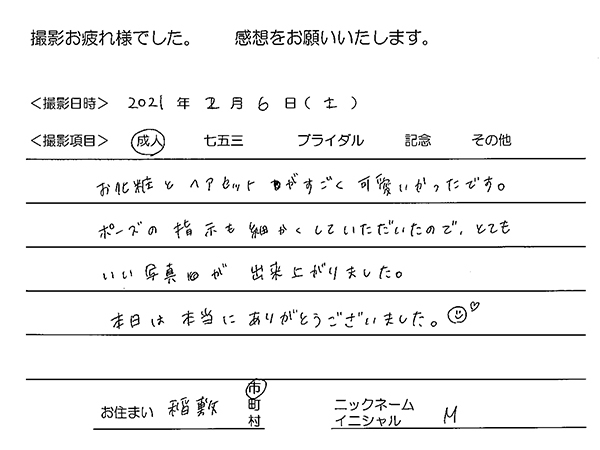 撮影お疲れ様でした。　感想をお願いいたします。
<撮影日時> 2021 年 2 月 6 日 (土)
<撮影項目> 成人 七五三 ブライダル 記念 その他
お化粧とヘアセットがすごく可愛いかったです。
ポーズの指示も細かくしていただいたので、とても
いい写真が出来上がりました。
本日は本当にありがとうございました。
お住まい 稲敷 市町村 ニックネーム イニシャル M